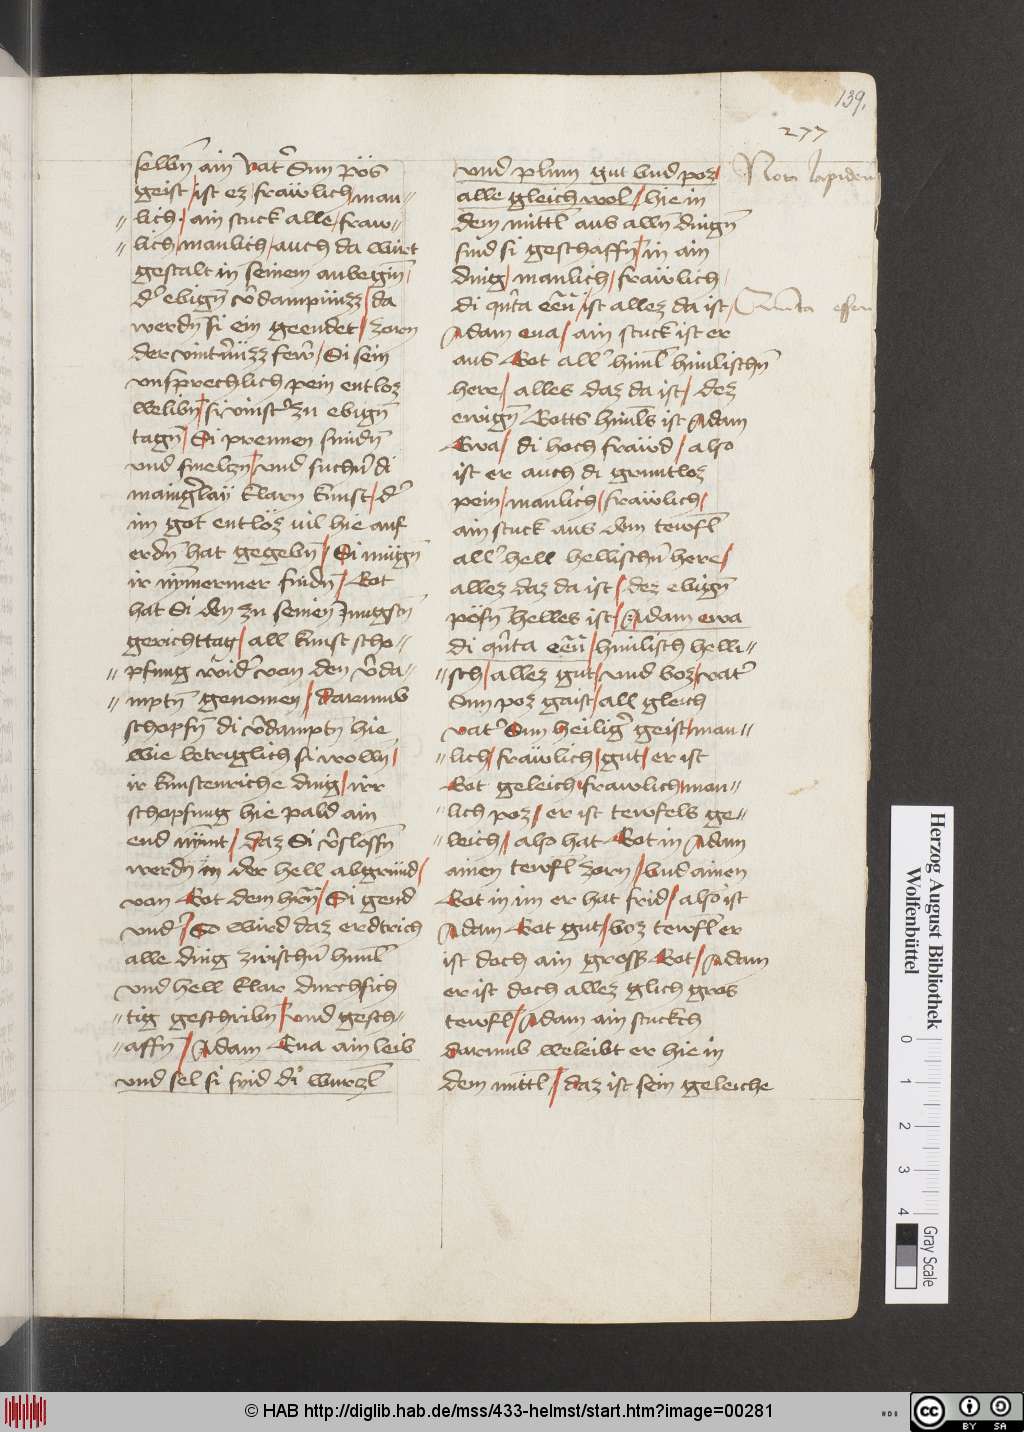 139.
277
selbñ ain vatˀ Sun pös
geist / ist ez frawlich man=
= lich / ain stuck alle / fraw=
= lich / manlich / auch da wirt
gestalt in seinem anbegin̄ /
dˀ ebigñ v̄dampnüzz / da
werdñ si ein geendet / zorn
der vinstˀnüzz fewr̄ / Si sein
vnsprechlich pein entloz
welibñ / si vinstˀ zu ebigñ
tagñ / Si prennen sindñ
vnd smelczn̄ / vnd suchn̄ di
maingˀlay klarn kunst / dˀ
im got entlöz vil hie auf
erdñ hat gegebñ / Si mügñ
ir nym̄ermer findñ / Got
hat Si den zu seinen Jungstñ
gerichttag / all kunst scho=
= pfung widˀ von den v̄da=
= mptñ genomen / darumb
schopfñ di v̄damptñ hie
wie betriglich si wolln̄ /
ir kunstenriche ding / irr
schopfung hie pald ain
end nym̄t / daz Si v̄slossñ
werdñ in der hell abgründ /
von Got dem hr̄n / Si gend
vndˀ / So wird daz erdtrich
alle ding zwischn̄ himl̄
vnd hell klar durchsich
= tig geschribñ / vnd gesch=
= affñ / Adam Eua ain leib
vnd sel si sind di wurczl̄
vnd plum gut vnd poz /
alle gleich wol / hie in
dem mittl̄ aus alln̄ dingñ
sind si geschaffñ / in ain
ding / manlich / frawlich /
di qn̄ta eēn̄ / ist allez da ist /
Adam eua / ain stuck ist er
aus Got allˀ himl̄ himlischñ
here / alles daz da ist / dez
ewigñ Gotts himls ist Adam
Ewa / di hoch frawd / also
ist er auch di gruntloz
pein / manlich / frawlich /
ain stuck aus dem tewfl̄
allˀ hell hellischn̄ here /
allez daz da ist / dez ebigñ
pösñ helles ist / Adam ewa
di qn̄ta eēn̄ / himlisch helli=
= sch / allez gut / vnd boz / vatˀ
Sun poz gaist / all gleich
vatˀ Sun heiligˀ geist / man=
= lich / frawlich / gut / er ist
Got geleich frawlich / man=
= lich poz / er ist tewfels ge=
= leich / also hat Got in Adam
ainen tewfl̄ zorn / vnd ainen
Got in im er hat frid / also ist
Adam Got gut / boz tewfl̄ er
ist doch ain gross Got / Adam
er ist doch allez glich gros
tewfl / Adam ain stuckch
darumb weleibt er hie in
dem mittl̄ / daz ist sein geleiche
Non lapidem
Quinta essen
Herzog August Bibliothek
Wolfenbüttel
0 1 2 3 4
Gray Scale
© HAB http://diglib.hab.de/mss/433-helmst/start.htm?image=00281
HAB
cc BY SA